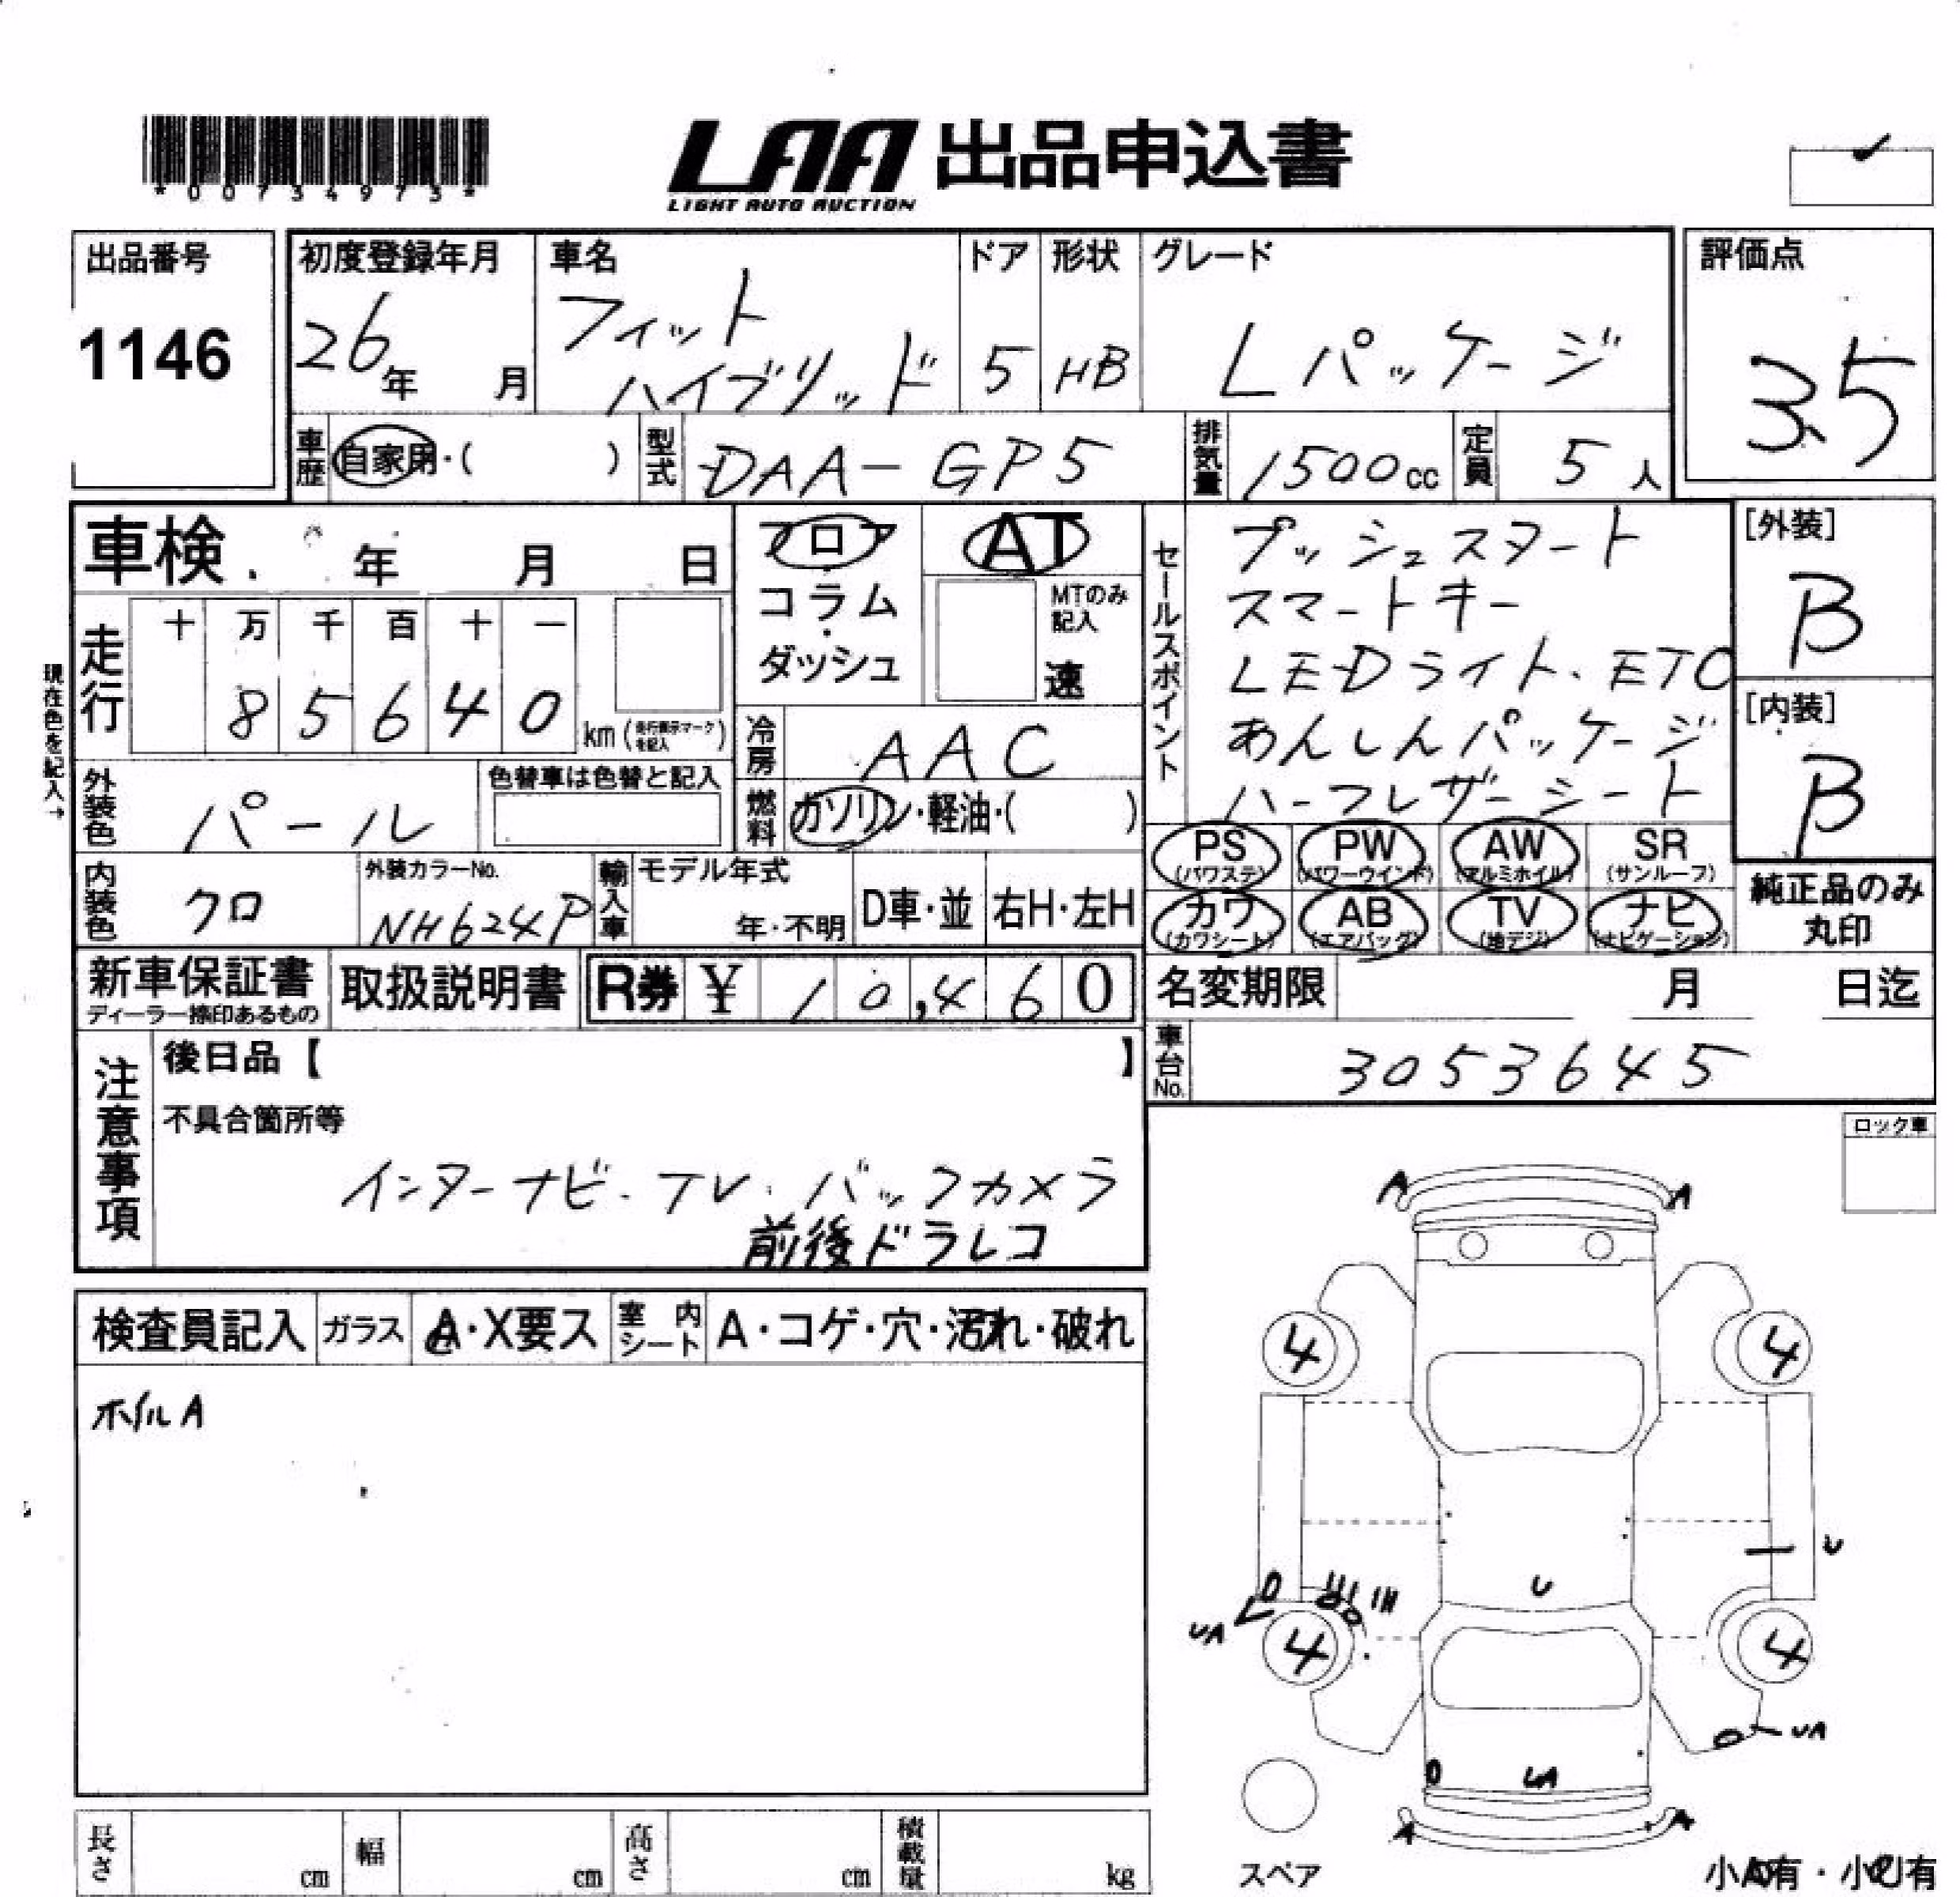 *00734973*
LAA 出品申込書
LIGHT AUTO AUCTION
出品番号
1146
初度登録年月
26年 月
車名
フィット
ハイブリッド
ドア
5
形状
HB
グレード
Lパッケージ
評価点
3.5
車歴 自家用・( )
型式 DAA-GP5
排気量 1500cc
定員 5人
車検 年 月 日
フロア
コラム
・
ダッシュ
AT
MTのみ
記入
速
セールスポイント
プッシュスタート
スマートキー
LEDライト、ETC
あんしんパッケージ
ハーフレザーシート
[外装]
B
[内装]
B
現在色を記入→
走行
十 万 千 百 十 一
8 5 6 4 0
km(走行表示マークを記入)
冷房 AAC
外装色 パール
色替車は色替と記入
燃料 ガソリン・軽油・( )
PS (パワステ)
PW (パワーウインド)
AW (アルミホイル)
SR (サンルーフ)
カワ (カワシート)
AB (エアバッグ)
TV (地デジ)
ナビ (ナビゲーション)
純正品のみ
丸印
内装色 クロ
外装カラーNo.
NH624P
輸入車
モデル年式
年・不明
D車・並
右H・左H
新車保証書
ディーラー捺印あるもの
取扱説明書
R券 ¥ 10,460
名変期限 月 日迄
車台No. 3053645
注意事項
後日品【 】
不具合箇所等
インターナビ・TV・バックカメラ
前後ドラレコ
ロック車
検査員記入
ガラス A・X要ス
室内シート A・コゲ・穴・汚れ・破れ
ホイルA
A A
4 4
U
U
UA
4 4
UA
UA
A A
スペア
小A有・小U有
長さ cm
幅 cm
高さ cm
積載量 kg